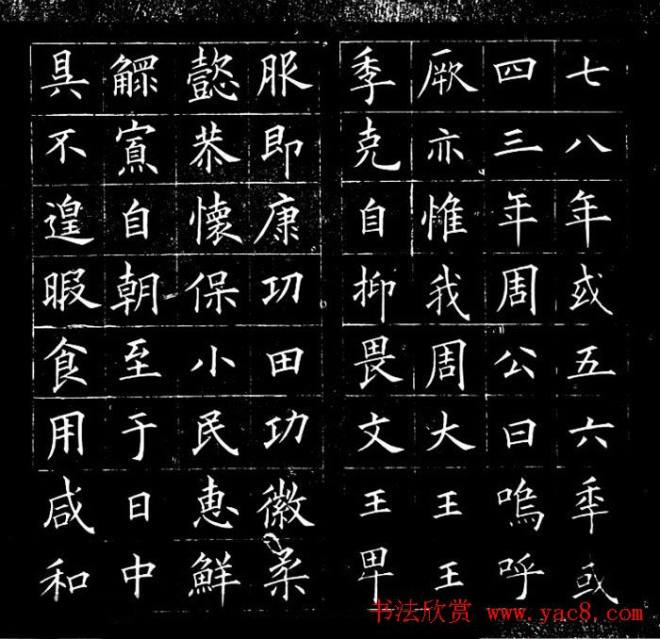 七八年或五六秊或
四三年周公曰嗚呼
厥亦惟我周大王王
季克自抑畏文王卑
服即康功田功徽柔
懿恭懷保小民惠鮮
鰥寡自朝至于日中
昃不遑暇食用咸和
书法欣赏 www.yac8.com